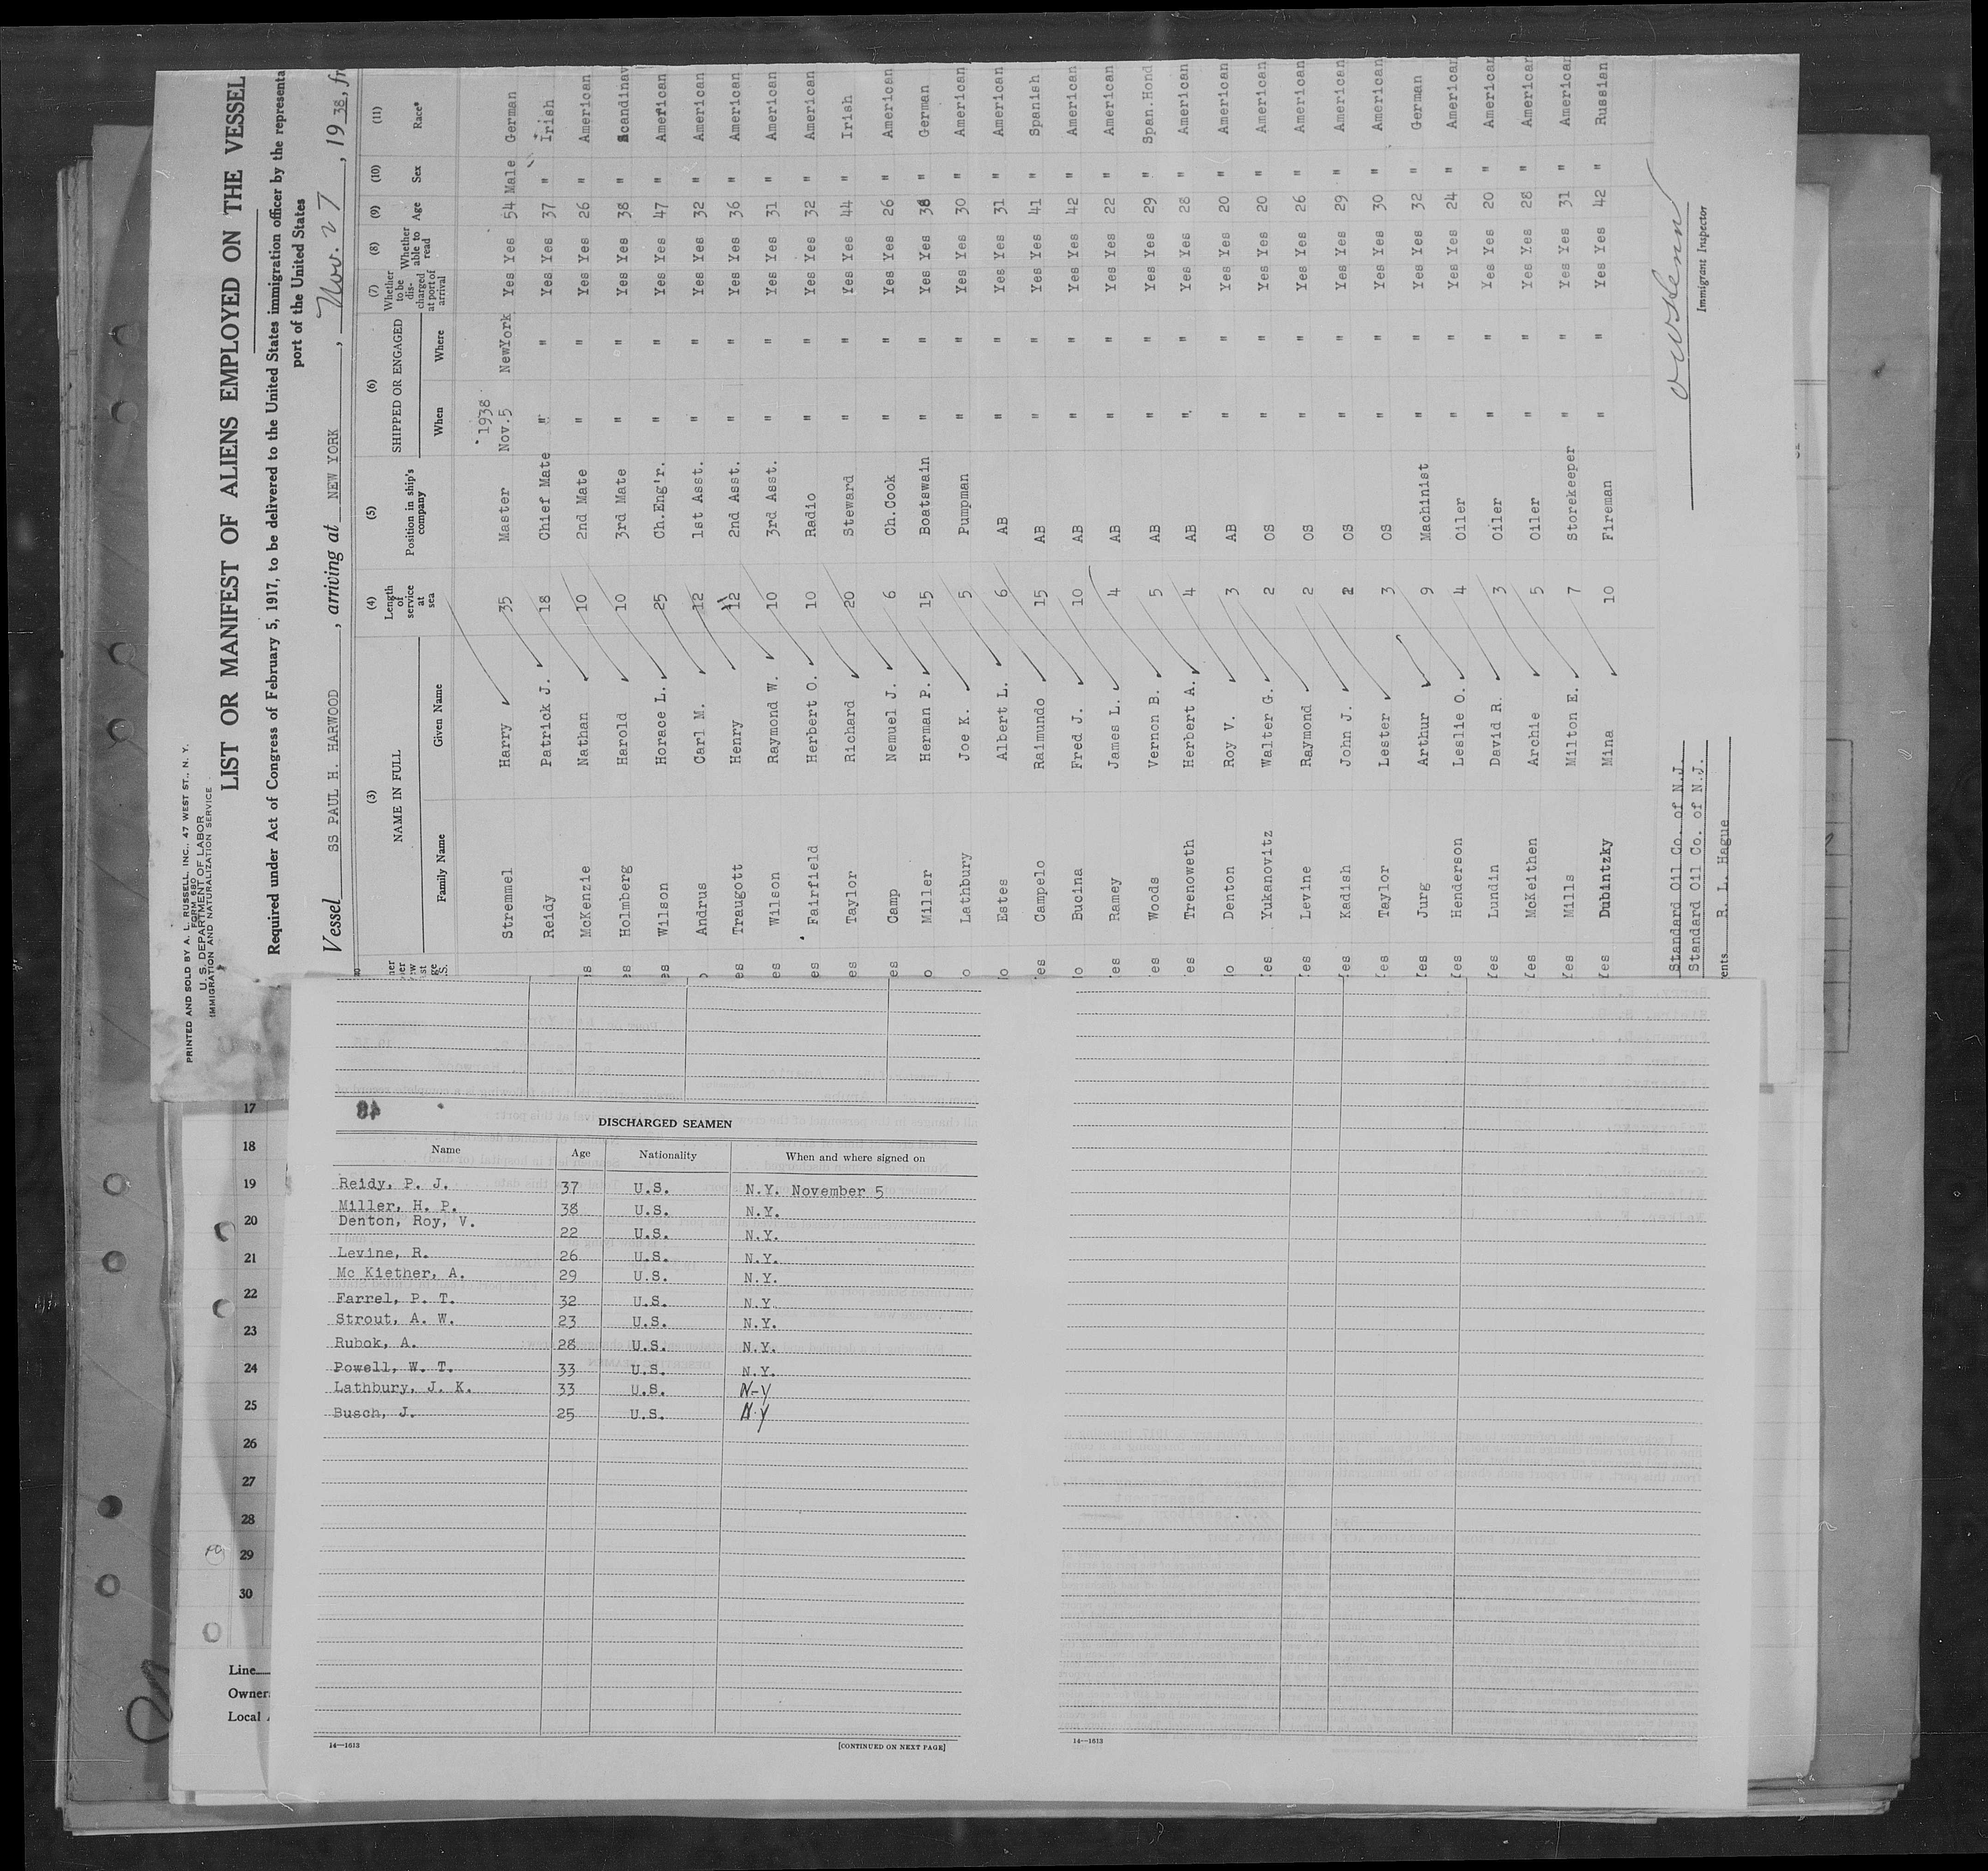 PRINTED AND SOLD BY A. L. RUSSELL, INC., 47 WEST ST., N. Y.
FORM 680
U. S. DEPARTMENT OF LABOR
IMMIGRATION AND NATURALIZATION SERVICE
LIST OR MANIFEST OF ALIENS EMPLOYED ON THE VESSEL
Required under Act of Congress of February 5, 1917, to be delivered to the United States immigration officer by the representa
port of the United States
Vessel SS PAUL H. HARWOOD, arriving at NEW YORK, Nov. 27, 1938, fr
(3) (4) (5) (6) (7) (8) (9) (10) (11)
NAME IN FULL Length of service at sea Position in ship's company SHIPPED OR ENGAGED Whether to be discharged at port of arrival Whether able to read Age Sex Race*
Family Name Given Name When Where
1938
Stremmel Harry 35 Master Nov.5 NewYork Yes Yes 54 Male German
Reidy Patrick J. 18 Chief Mate " " Yes Yes 37 " Irish
McKenzie Nathan 10 2nd Mate " " Yes Yes 26 " American
Holmberg Harold 10 3rd Mate " " Yes Yes 38 " Scandinav
Wilson Horace L. 25 Ch.Eng'r. " " Yes Yes 47 " American
Andrus Carl M. 12 1st Asst. " " Yes Yes 32 " American
Traugott Henry 12 2nd Asst. " " Yes Yes 36 " American
Wilson Raymond W. 10 3rd Asst. " " Yes Yes 31 " American
Fairfield Herbert O. 10 Radio " " Yes Yes 32 " American
Taylor Richard 20 Steward " " Yes Yes 44 " Irish
Camp Nemuel J. 6 Ch.Cook " " Yes Yes 26 " American
Miller Herman P. 15 Boatswain " " Yes Yes 38 " German
Lathbury Joe K. 5 Pumpman " " Yes Yes 30 " American
Estes Albert L. 6 AB " " Yes Yes 31 " American
Campelo Raimundo 15 AB " " Yes Yes 41 " Spanish
Bucina Fred J. 10 AB " " Yes Yes 42 " American
Ramey James L. 4 AB " " Yes Yes 22 " American
Woods Vernon B. 5 AB " " Yes Yes 29 " Span.Hond
Trenoweth Herbert A. 4 AB " " Yes Yes 28 " American
Denton Roy V. 3 AB " " Yes Yes 20 " American
Yukanovitz Walter G. 2 OS " " Yes Yes 20 " American
Levine Raymond 2 OS " " Yes Yes 26 " American
Kadish John J. 2 OS " " Yes Yes 29 " American
Taylor Lester 3 OS " " Yes Yes 30 " American
Jurg Arthur 9 Machinist " " Yes Yes 32 " German
Henderson Leslie O. 4 Oiler " " Yes Yes 24 " American
Lundin David R. 3 Oiler " " Yes Yes 20 " American
McKeithen Archie 5 Oiler " " Yes Yes 28 " American
Mills Milton E. 7 Storekeeper " " Yes Yes 31 " American
Dubintzky Mina 10 Fireman " " Yes Yes 42 " Russian
Standard Oil Co. of N.J.
Standard Oil Co. of N.J.
ents R. L. Hague
Immigrant Inspector
DISCHARGED SEAMEN
Name Age Nationality When and where signed on
Reidy, P. J. 37 U.S. N.Y. November 5
Miller, H. P. 38 U.S. N.Y.
Denton, Roy, V. 22 U.S. N.Y.
Levine, R. 26 U.S. N.Y.
Mc Kiether, A. 29 U.S. N.Y.
Farrel, P. T. 32 U.S. N.Y.
Strout, A. W. 23 U.S. N.Y.
Rubok, A. 28 U.S. N.Y.
Powell, W. T. 33 U.S. N.Y.
Lathbury, J. K. 33 U.S. N-Y
Busch, J. 25 U.S. N.Y
14—1613 [CONTINUED ON NEXT PAGE]
14—1613
17
18
19
20
21
22
23
24
25
26
27
28
29
30
Line
Owner
Local